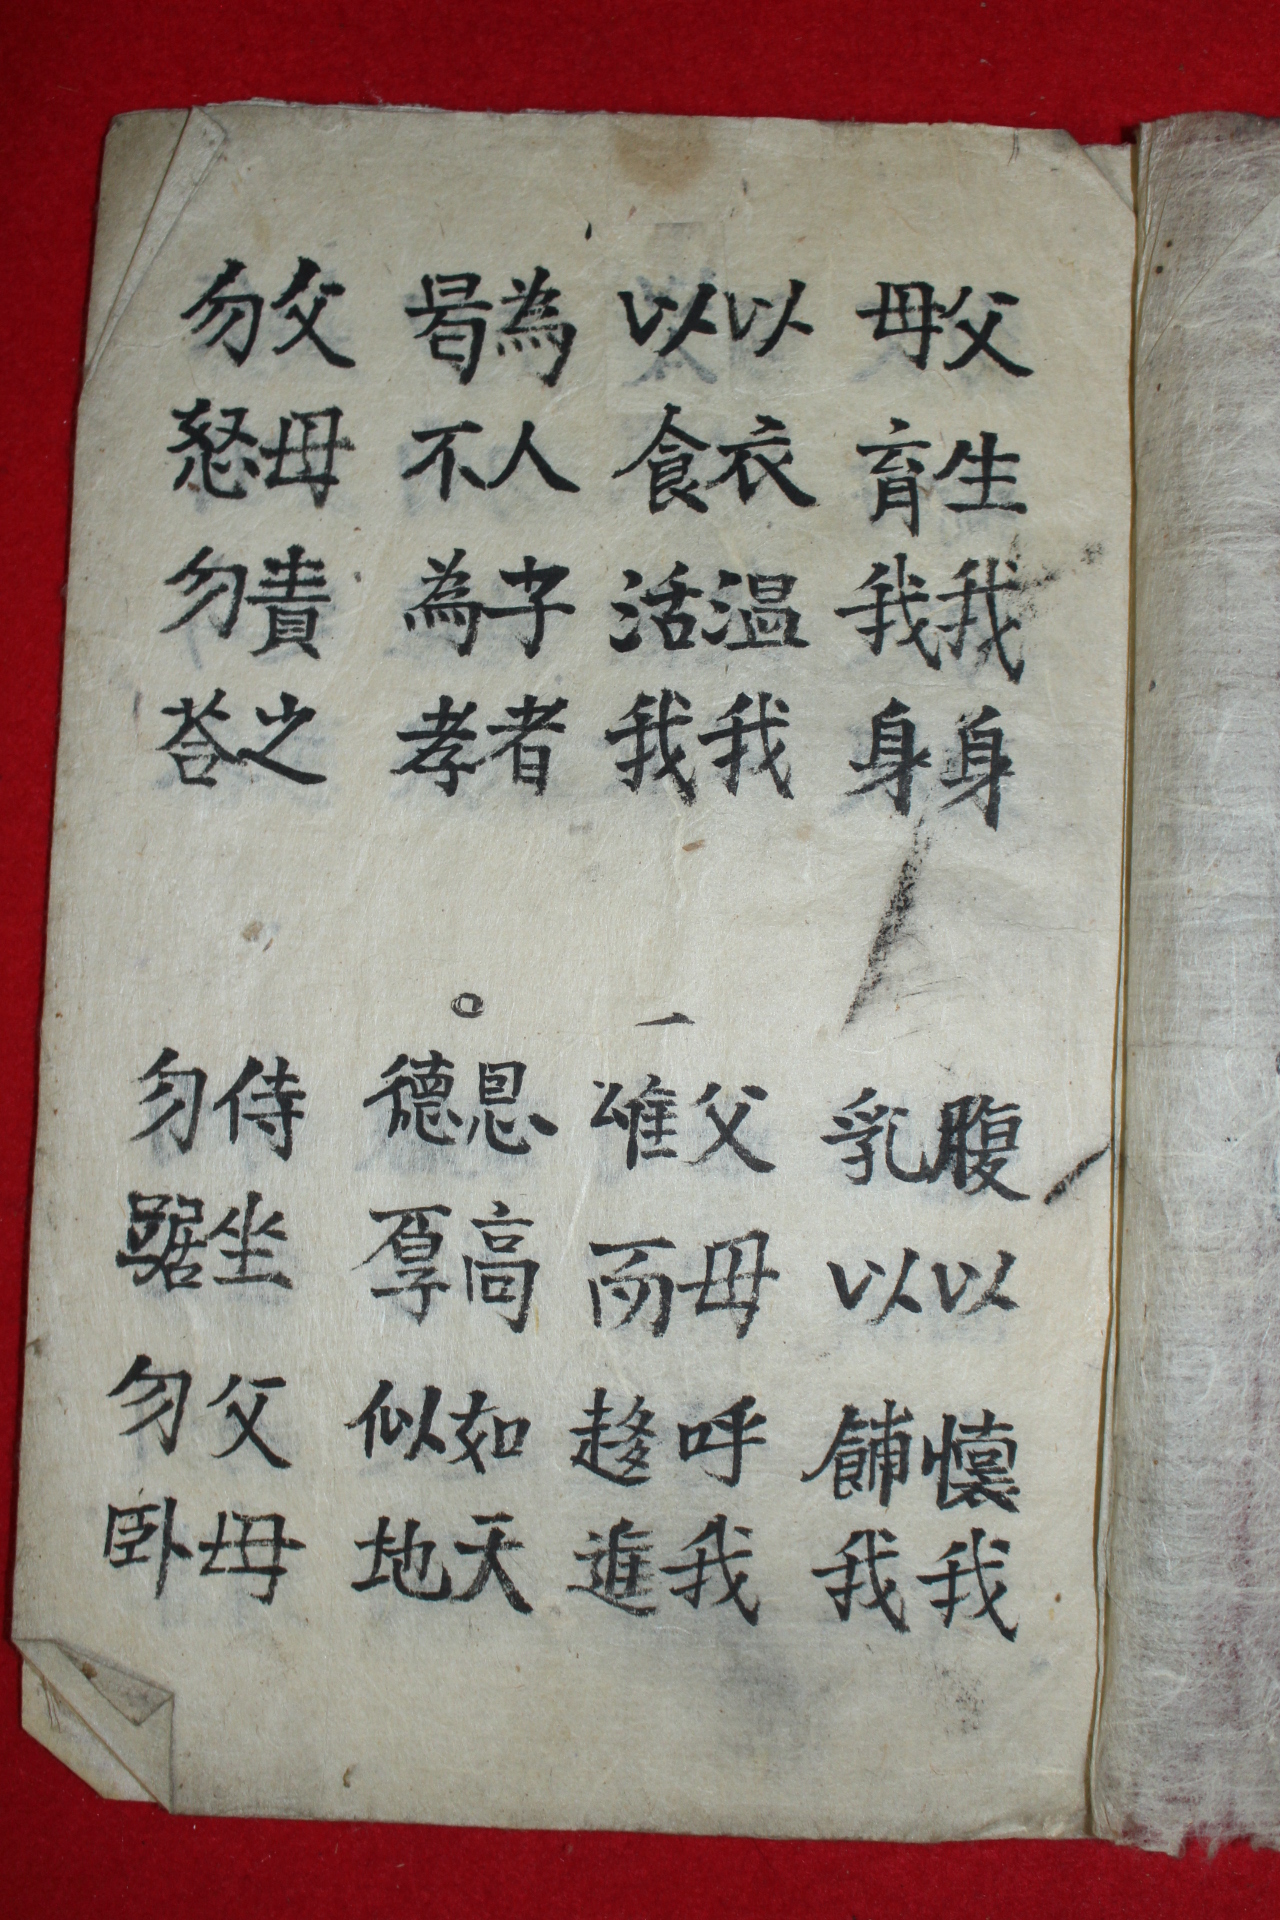 父生我身
母育我身
腹以懷我
乳以餔我
以衣温我
以食活我
父母呼我
唯而趍進
為人子者
曷不為孝
恩高如天
德厚似地
父母責之
勿怒勿荅
侍坐父母
勿踞勿卧